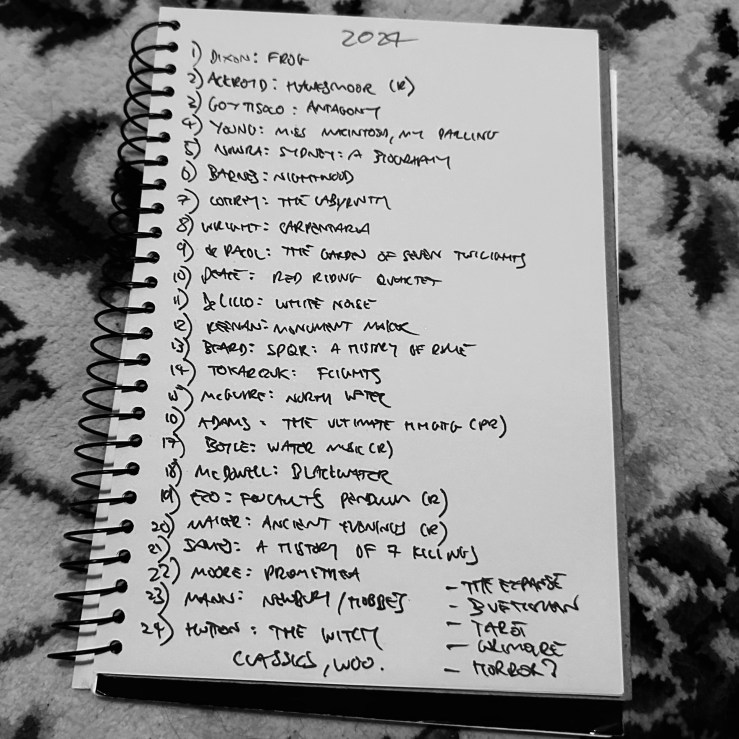 2024
1) DIXON: FROG
2) ACKROYD: HAWKSMOOR (R)
3) GOYTISOLO: ANTAGONY
4) YOUNG: MISS MACINTOSH, MY DARLING
5) NOWRA: SYDNEY: A BIOGRAPHY
6) BARNES: NIGHTWOOD
7) THE LABYRINTH
8) WRIGHT: CARPENTARIA
9) de PALOL: THE GARDEN OF SEVEN TWILIGHTS
10) PEACE: RED RIDING QUARTET
11) DeLILLO: WHITE NOISE
12) KEENAN: MONUMENT MAKER
13) BEARD: SPQR: A HISTORY OF ROME
14) TOKARCZUK: FLIGHTS
15) McGUIRE: NORTH WATER
16) ADAMS: THE ULTIMATE HHGTG (PR)
17) BOYLE: WATER MUSIC (R)
18) McDOWELL: BLACKWATER
19) ECO: FOUCAULT'S PENDULUM (R)
20) MAILER: ANCIENT EVENINGS (R)
21) JAMES: A HISTORY OF 7 KILLINGS
22) MOORE: PROMETHEA
23) MANN: NEWBURY/HOBBES
24) HUTTON: THE WITCH
CLASSICS, WOO.
- THE EXPANSE
- BUEHLMAN
- TAROT
- GRIMOIRE
- HORROR?